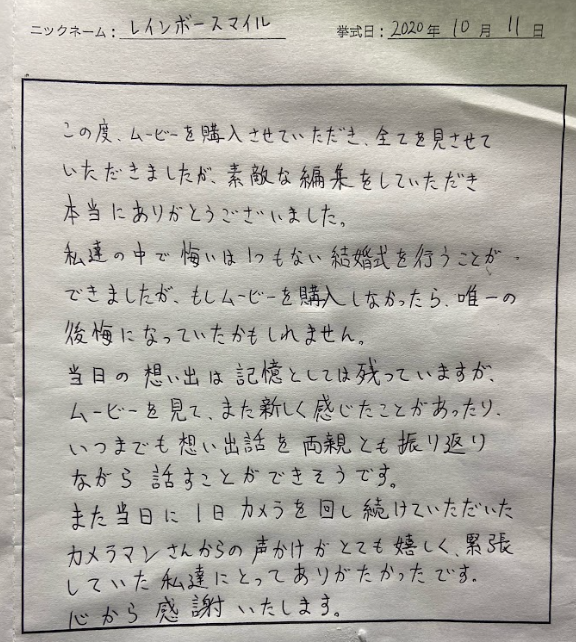 ニックネーム: レインボースマイル 挙式日: 2020年 10月 11日
この度、ムービーを購入させていただき、全てを見させて
いただきましたが、素敵な編集をしていただき
本当にありがとうございました。
私達の中で悔いは1つもない結婚式を行うことが
できましたが、もしムービーを購入しなかったら、唯一の
後悔になっていたかもしれません。
当日の想い出は記憶としては残っていますが、
ムービーを見て、また新しく感じたことがあったり、
いつまでも想い出話を両親とも振り返り
ながら話すことができそうです。
また当日に1日カメラを回し続けていただいた
カメラマンさんからの声かけがとても嬉しく、緊張
していた私達にとってありがたかったです。
心から感謝いたします。